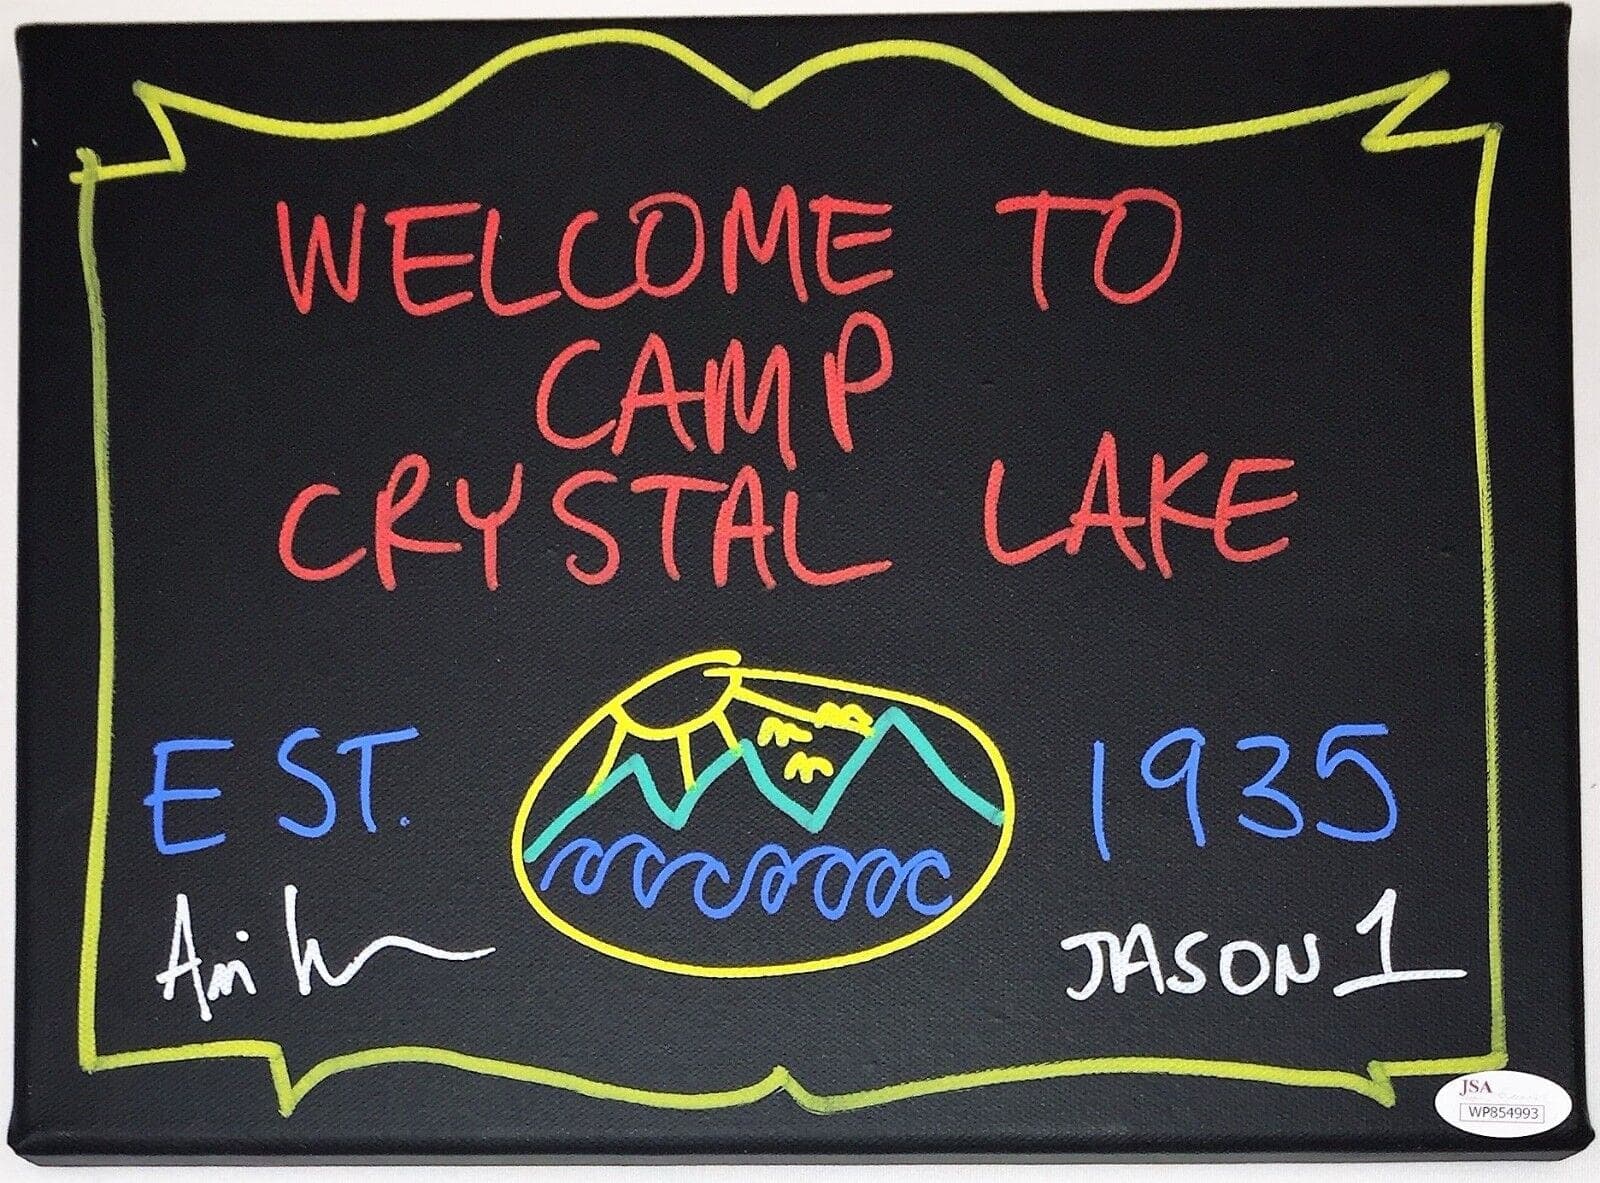 WELCOME TO
CAMP
CRYSTAL LAKE
EST. 1935
Ari
JASON 1
JSA
WP854993